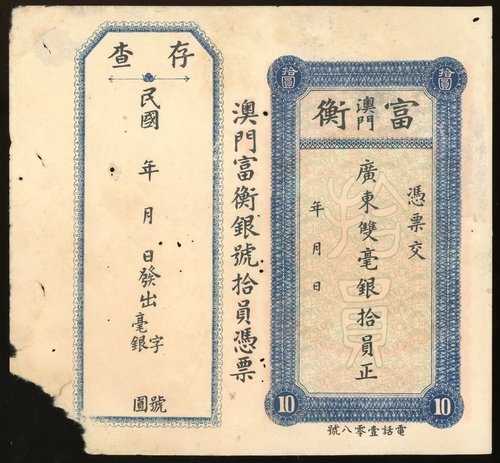 拾圓
拾圓
富澳門衡
憑票交
廣東雙毫銀拾員正
年月日
拾員
10
10
電話壹零八號
澳門富衡銀號拾員憑票
存查
民國年月日發出
字
毫銀
號
圓